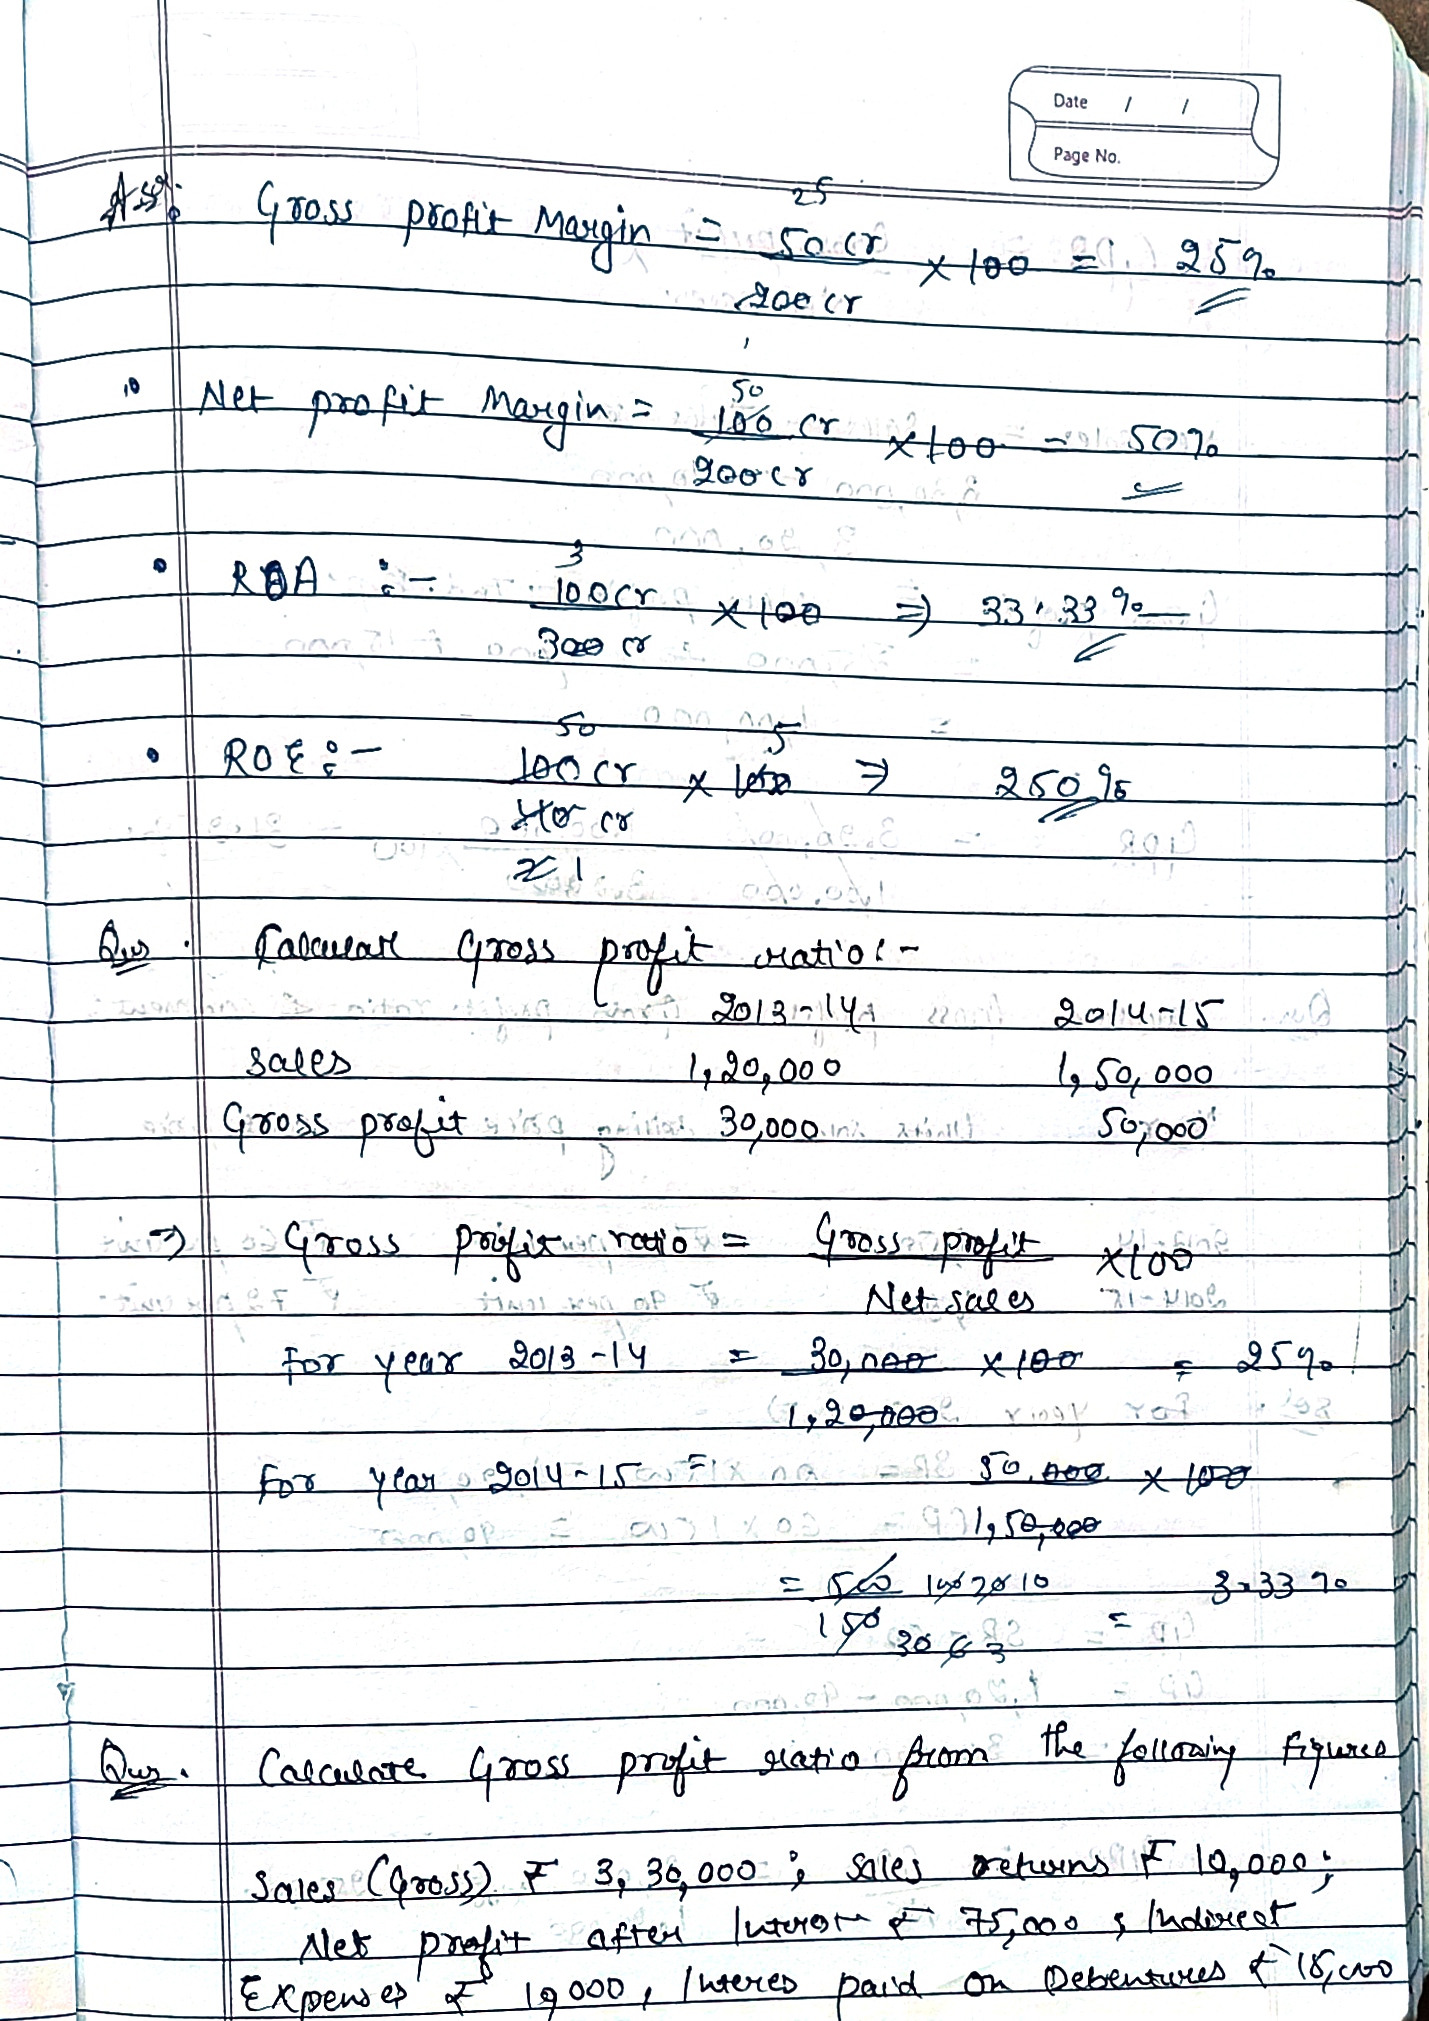 Date / /
Page No.
Ans. Gross profit Margin = 25
50 cr × 100 = 25%
200 cr
Net profit Margin = 50
100 cr × 100 = 50%
200 cr
ROA :- 3
100 cr × 100 ⇒ 33.33%
300 cr
ROE :- 50 5
100 cr × 100 ⇒ 250%
40 cr
2 1
Ques. Calculate Gross profit ratio :-
2013-14 2014-15
Sales 1,20,000 1,50,000
Gross profit 30,000 50,000
⇒ Gross profit ratio = Gross profit × 100
Net sales
For year 2013-14 = 30,000 × 100 = 25%
1,20,000
For year 2014-15 = 50,000 × 100
1,50,000
= 10 3.33%
150 30 6 3 =
Ques. Calculate Gross profit ratio from the following figures
Sales (Gross) ₹ 3,30,000 ; Sales returns ₹ 10,000 ;
Net profit after Interst ₹ 75,000 ; Indirect
Expenses ₹ 000, Interes paid on Debentures ₹ 15,000